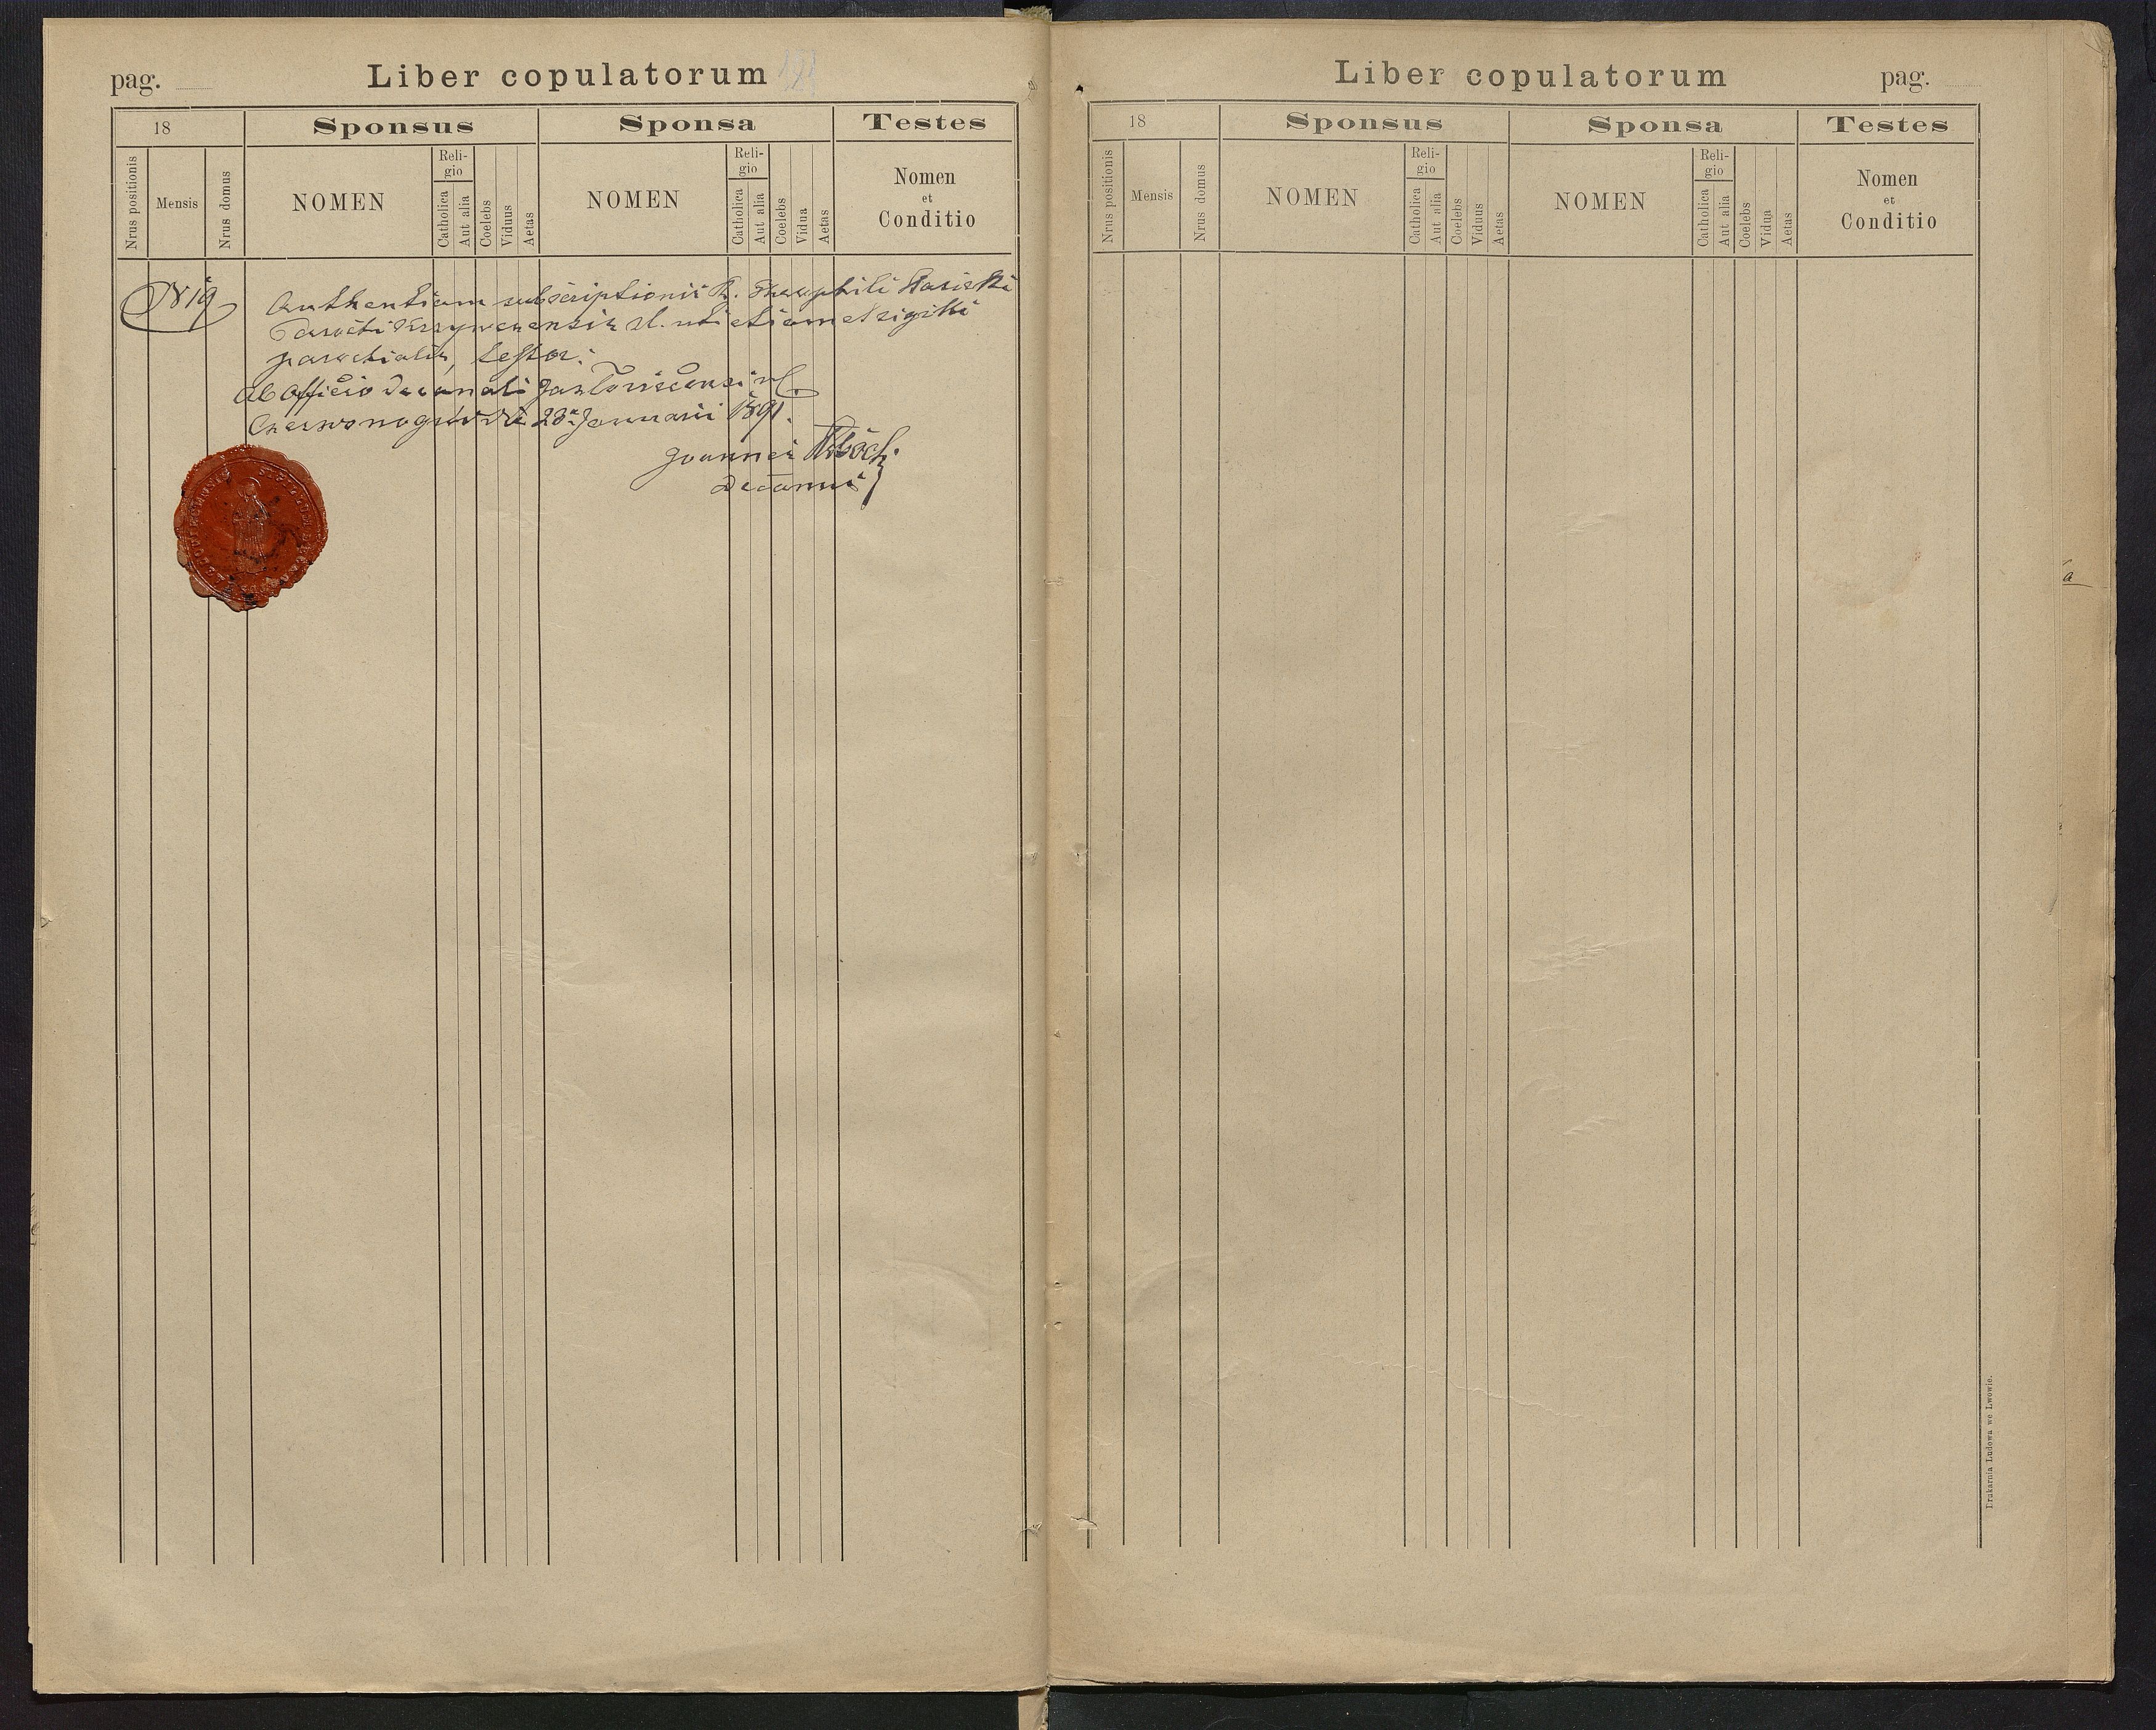 pag.
Liber copulatorum
18 Sponsus Sponsa Testes
Nrus positionis Mensis Nrus domus NOMEN Religio Catholica Aut alia Coelebs Viduus Aetas NOMEN Religio Catholica Aut alia Coelebs Vidua Aetas Nomen et Conditio
N 19
Authentiam subscriptionis R. Theophili
Parochi r. l. uti etiam et sigilli
parochialis, testor.
Ab Officio decanali r. l.
Czerwonogród 23 Januarii 1891.
Joannes
decanus
Liber copulatorum
pag.
18 Sponsus Sponsa Testes
Nrus positionis Mensis Nrus domus NOMEN Religio Catholica Aut alia Coelebs Viduus Aetas NOMEN Religio Catholica Aut alia Coelebs Vidua Aetas Nomen et Conditio
a
Drukarnia Ludowa we Lwowie.